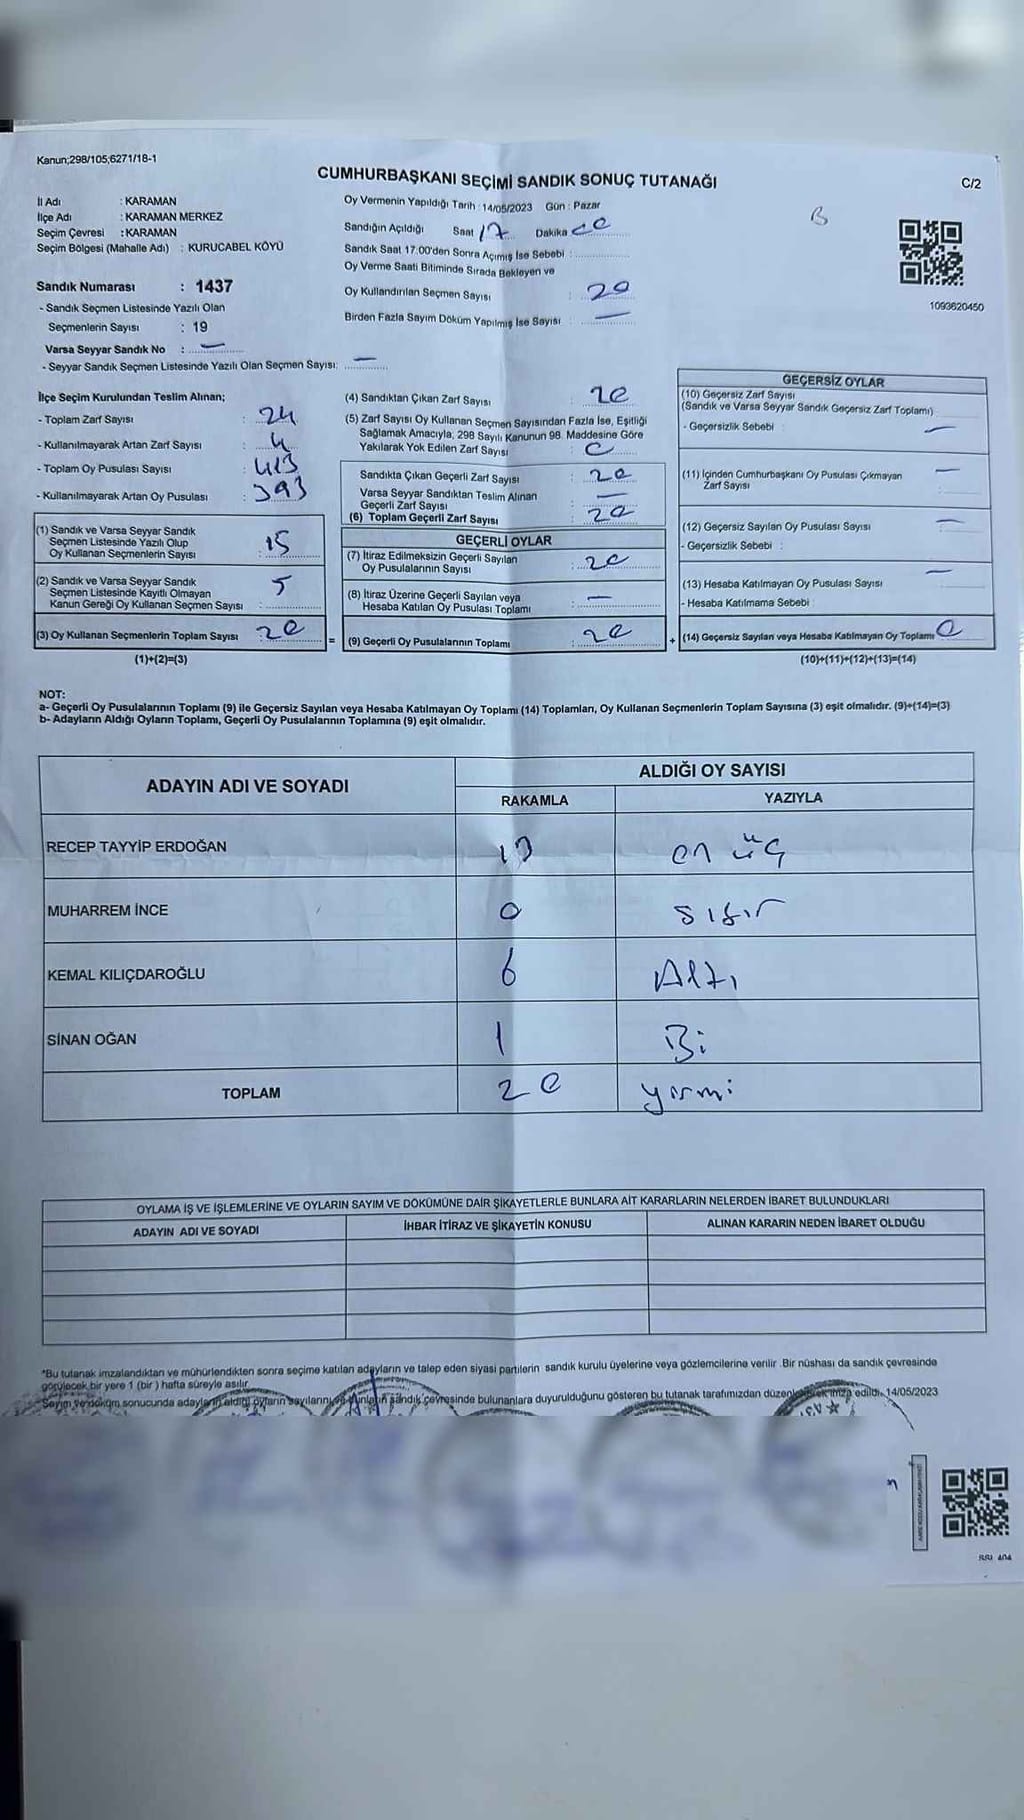 Kanun;298/105;6271/18-1
CUMHURBAŞKANI SEÇİMİ SANDIK SONUÇ TUTANAĞI
C/2
İl Adı : KARAMAN
İlçe Adı : KARAMAN MERKEZ
Seçim Çevresi : KARAMAN
Seçim Bölgesi (Mahalle Adı) : KURUCABEL KÖYÜ
Sandık Numarası : 1437
- Sandık Seçmen Listesinde Yazılı Olan
Seçmenlerin Sayısı : 19
Varsa Seyyar Sandık No : —
- Seyyar Sandık Seçmen Listesinde Yazılı Olan Seçmen Sayısı: —
Oy Vermenin Yapıldığı Tarih : 14/05/2023 Gün : Pazar
Sandığın Açıldığı Saat 17 Dakika 00
Sandık Saat 17:00'den Sonra Açımış İse Sebebi :
Oy Verme Saati Bitiminde Sırada Bekleyen ve
Oy Kullandırılan Seçmen Sayısı : 20
Birden Fazla Sayım Döküm Yapılmış İse Sayısı : —
B
1093620450
İlçe Seçim Kurulundan Teslim Alınan;
- Toplam Zarf Sayısı : 24
- Kullanılmayarak Artan Zarf Sayısı : 4
- Toplam Oy Pusulası Sayısı : 413
- Kullanılmayarak Artan Oy Pusulası : 393
(1) Sandık ve Varsa Seyyar Sandık
Seçmen Listesinde Yazılı Olup
Oy Kullanan Seçmenlerin Sayısı : 15
(2) Sandık ve Varsa Seyyar Sandık
Seçmen Listesinde Kayıtlı Olmayan
Kanun Gereği Oy Kullanan Seçmen Sayısı : 5
(3) Oy Kullanan Seçmenlerin Toplam Sayısı : 20
(1)+(2)=(3)
=
(4) Sandıktan Çıkan Zarf Sayısı : 20
(5) Zarf Sayısı Oy Kullanan Seçmen Sayısından Fazla İse, Eşitliği
Sağlamak Amacıyla, 298 Sayılı Kanunun 98. Maddesine Göre
Yakılarak Yok Edilen Zarf Sayısı : 0
Sandıkta Çıkan Geçerli Zarf Sayısı : 20
Varsa Seyyar Sandıktan Teslim Alınan
Geçerli Zarf Sayısı : —
(6) Toplam Geçerli Zarf Sayısı : 20
GEÇERLİ OYLAR
(7) İtiraz Edilmeksizin Geçerli Sayılan
Oy Pusulalarının Sayısı : 20
(8) İtiraz Üzerine Geçerli Sayılan veya
Hesaba Katılan Oy Pusulası Toplamı : —
(9) Geçerli Oy Pusulalarının Toplamı : 20
+
GEÇERSİZ OYLAR
(10) Geçersiz Zarf Sayısı
(Sandık ve Varsa Seyyar Sandık Geçersiz Zarf Toplamı)
- Geçersizlik Sebebi : —
(11) İçinden Cumhurbaşkanı Oy Pusulası Çıkmayan
Zarf Sayısı —
(12) Geçersiz Sayılan Oy Pusulası Sayısı —
- Geçersizlik Sebebi :
(13) Hesaba Katılmayan Oy Pusulası Sayısı —
- Hesaba Katılmama Sebebi
(14) Geçersiz Sayılan veya Hesaba Katılmayan Oy Toplamı 0
(10)+(11)+(12)+(13)=(14)
NOT:
a- Geçerli Oy Pusulalarının Toplamı (9) ile Geçersiz Sayılan veya Hesaba Katılmayan Oy Toplamı (14) Toplamları, Oy Kullanan Seçmenlerin Toplam Sayısına (3) eşit olmalıdır. (9)+(14)=(3)
b- Adayların Aldığı Oyların Toplamı, Geçerli Oy Pusulalarının Toplamına (9) eşit olmalıdır.
ADAYIN ADI VE SOYADI ALDIĞI OY SAYISI
RAKAMLA YAZIYLA
RECEP TAYYİP ERDOĞAN 13 on üç
MUHARREM İNCE 0 sıfır
KEMAL KILIÇDAROĞLU 6 Altı
SİNAN OĞAN 1 Bi
TOPLAM 20 yirmi
OYLAMA İŞ VE İŞLEMLERİNE VE OYLARIN SAYIM VE DÖKÜMÜNE DAİR ŞİKAYETLERLE BUNLARA AİT KARARLARIN NELERDEN İBARET BULUNDUKLARI
ADAYIN ADI VE SOYADI İHBAR İTİRAZ VE ŞİKAYETİN KONUSU ALINAN KARARIN NEDEN İBARET OLDUĞU
*Bu tutanak imzalandıktan ve mühürlendikten sonra seçime katılan adayların ve talep eden siyasi partilerin sandık kurulu üyelerine veya gözlemcilerine verilir .Bir nüshası da sandık çevresinde
görülecek bir yere 1 (bir ) hafta süreyle asılır.
Sayım ve döküm sonucunda adayların aldığı oyların sayılarını ve bunların sandık çevresinde bulunanlara duyurulduğunu gösteren bu tutanak tarafımızdan düzenlenerek imza edildi. 14/05/2023